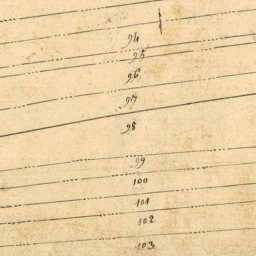 94
95
96
97
98
99
100
101
102
103